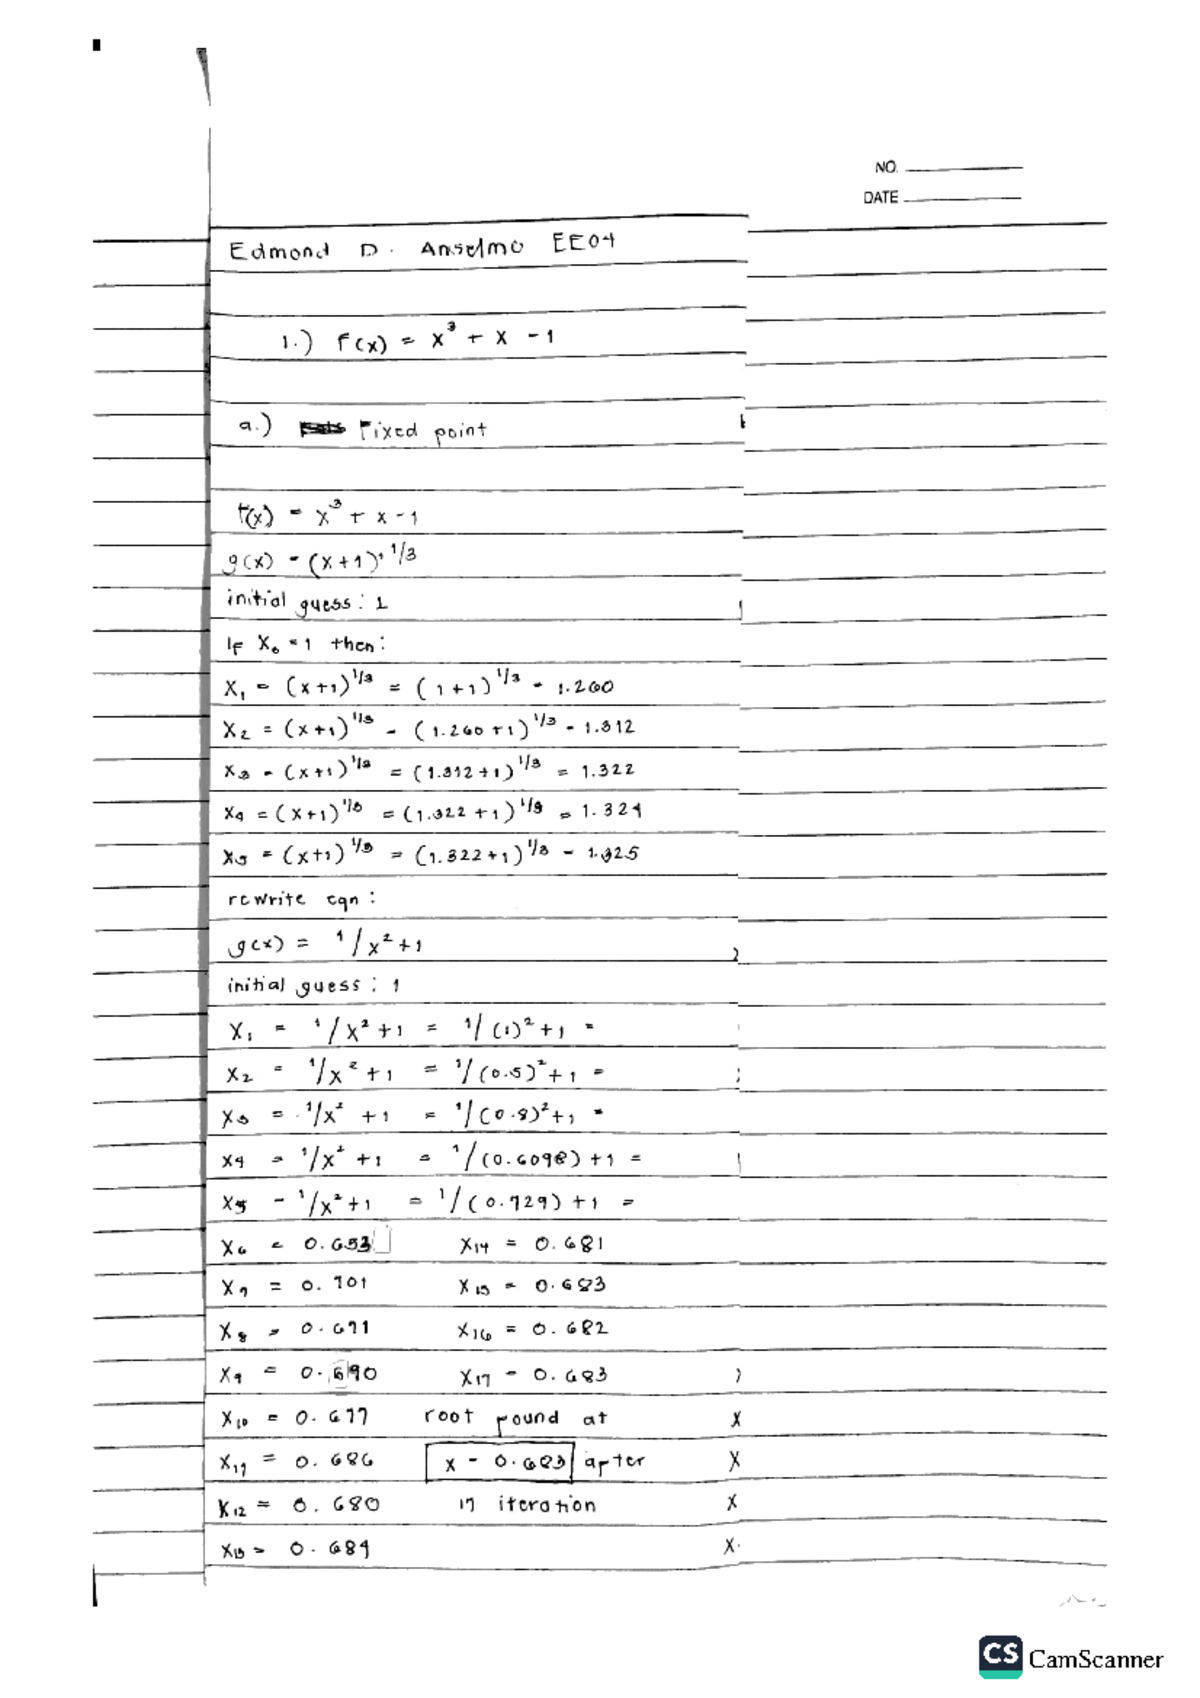 NO.
DATE
Edmond D. Anselmo EE04
1.) F(x) = x³ + x - 1
a.) Fixed point
f(x) = x³ + x - 1
g(x) = (x+1)^1/3
initial guess: 1
If X₀ = 1 then:
X₁ = (x+1)^1/3 = (1+1)^1/3 = 1.260
X₂ = (x+1)^1/3 = (1.260+1)^1/3 = 1.312
X₃ = (x+1)^1/3 = (1.312+1)^1/3 = 1.322
X₄ = (x+1)^1/3 = (1.322+1)^1/3 = 1.324
X₅ = (x+1)^1/3 = (1.322+1)^1/3 = 1.325
rewrite eqn:
g(x) = 1/x²+1
initial guess: 1
X₁ = 1/x²+1 = 1/(1)²+1 =
X₂ = 1/x²+1 = 1/(0.5)²+1 =
X₃ = 1/x²+1 = 1/(0.8)²+1 =
X₄ = 1/x²+1 = 1/(0.6098)+1 =
X₅ = 1/x²+1 = 1/(0.729)+1 =
X₆ = 0.653 X₁₄ = 0.681
X₇ = 0.701 X₁₅ = 0.683
X₈ = 0.671 X₁₆ = 0.682
X₉ = 0.690 X₁₇ = 0.683
X₁₀ = 0.677 root found at
X₁₁ = 0.686 x = 0.683 after
X₁₂ = 0.680 17 iteration
X₁₃ = 0.684
CS CamScanner